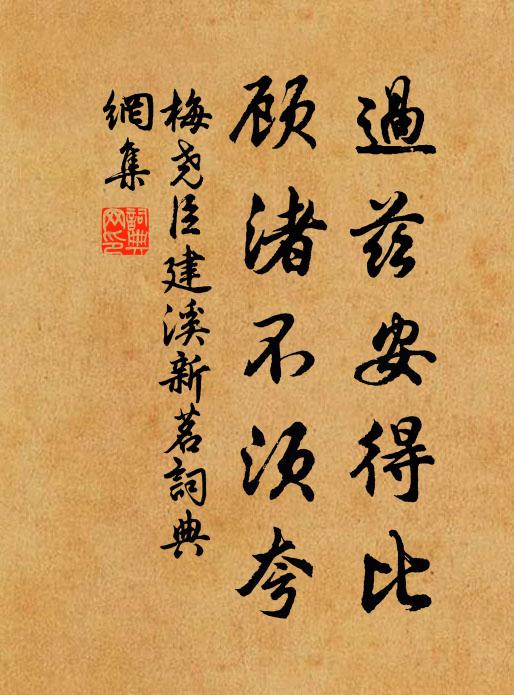 過茲安得比
顧渚不須夸
梅尧臣建溪新茗詞典
網集
詞典
网印